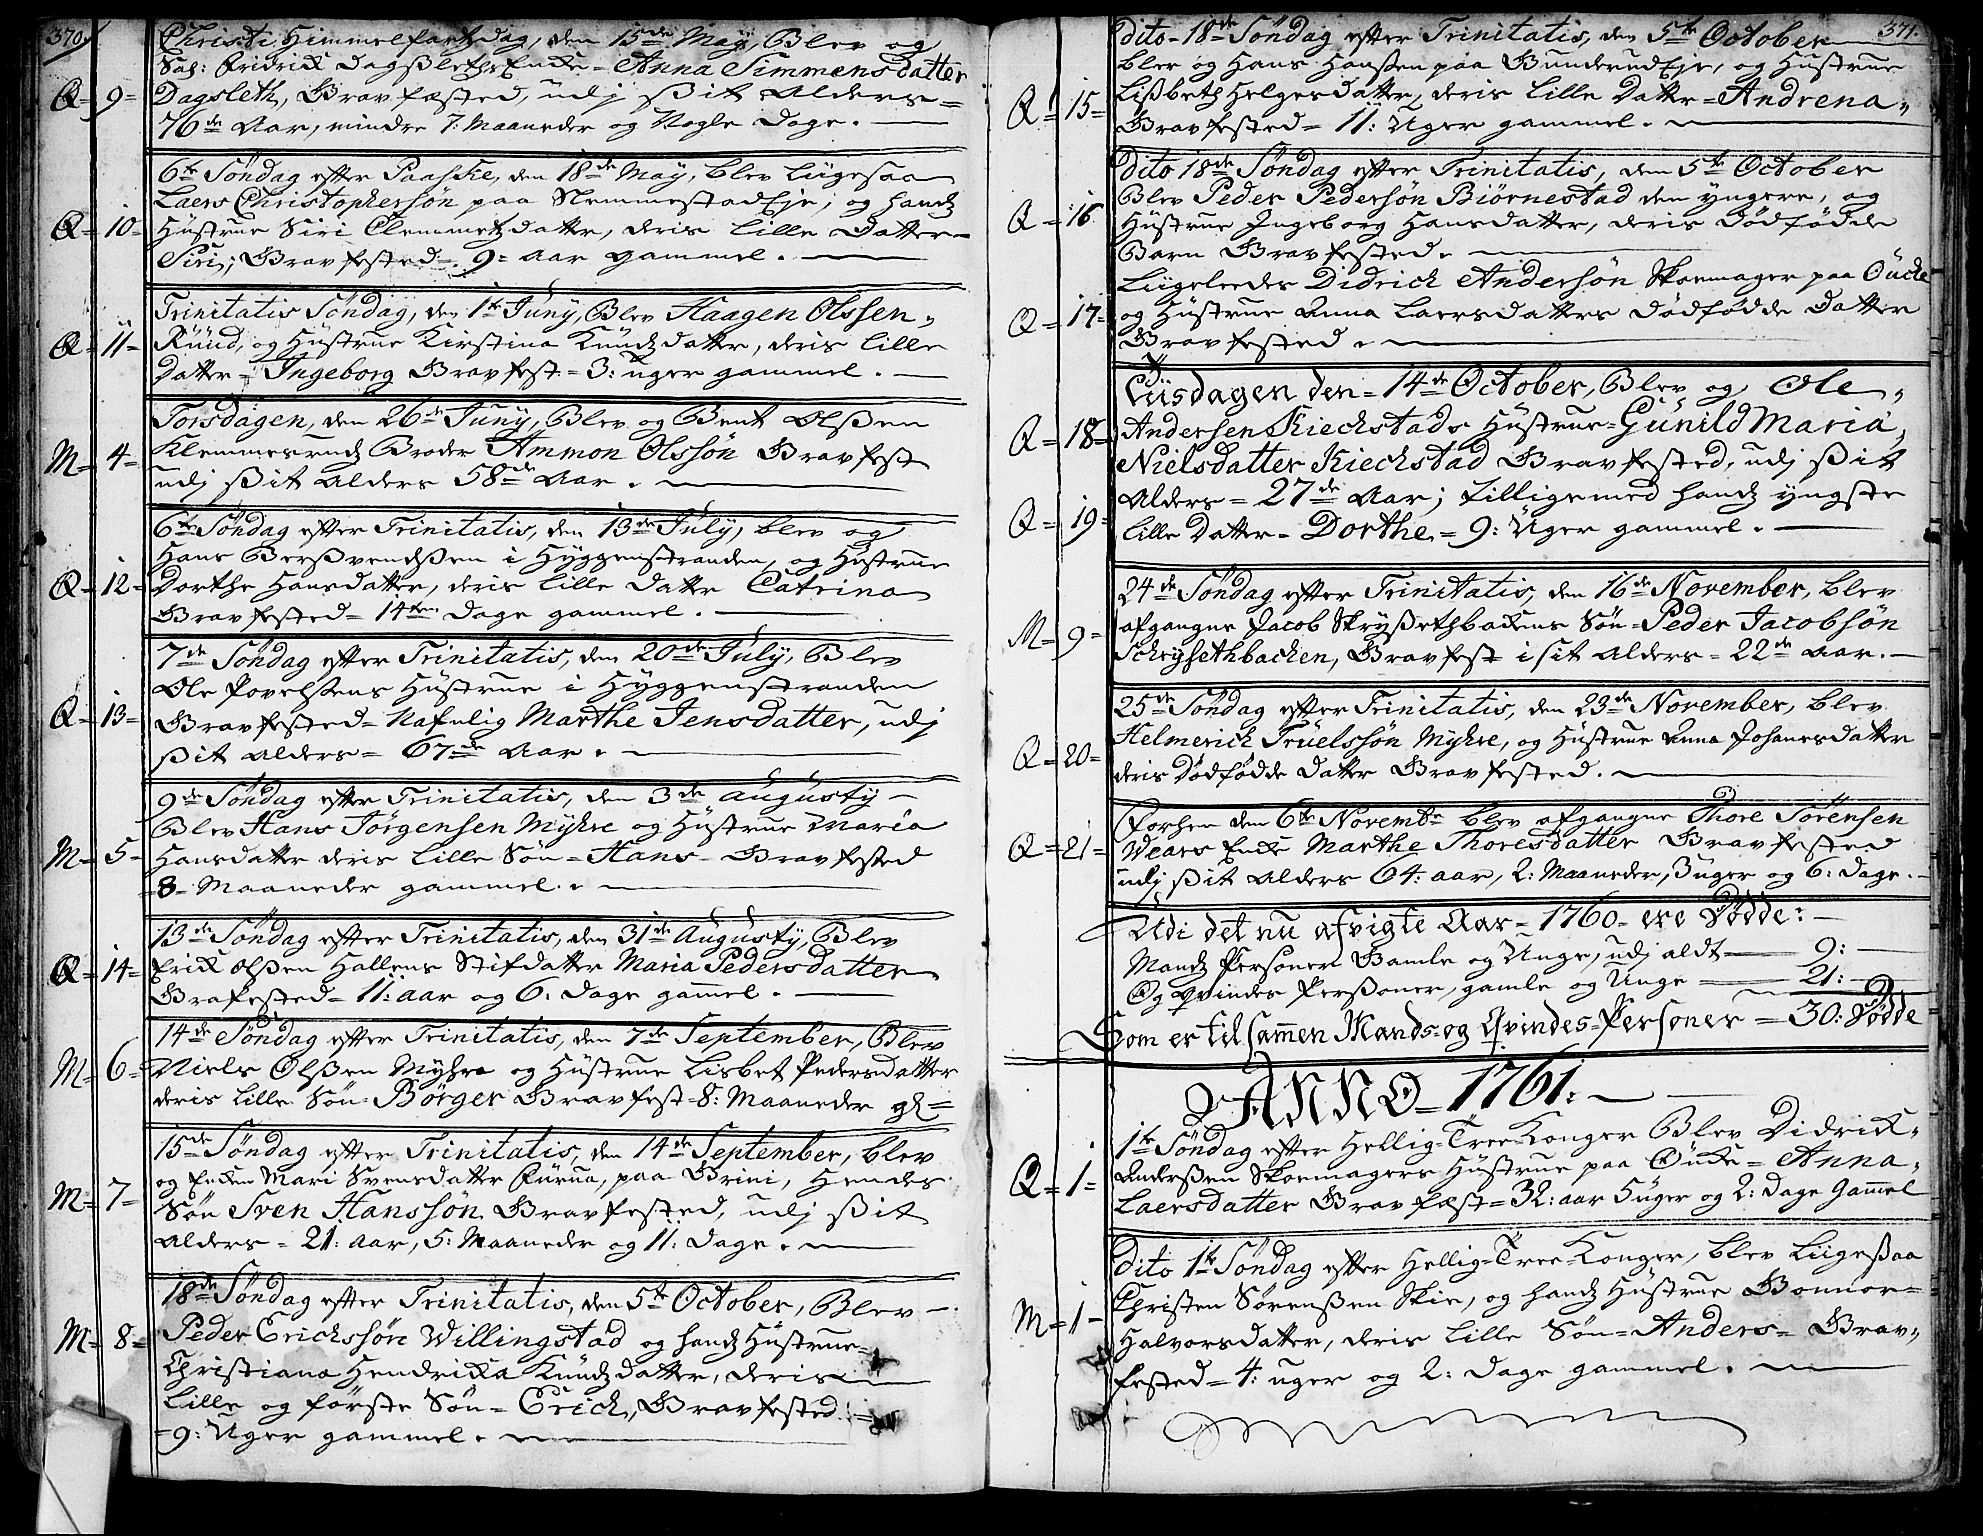 370.
Christi Himmelfartsdag, den 15de Maji, Blev og
Sal: Fridrick Dagsleths Encke - Anna Simmensdatter
Q= 9= Dagsleth, Gravfæsted, udj ßit Alders=
76de Aar, mindre 7: Maaneder og Nogle Dage.
6te Søndag efter Paaske, den 18de May, blev Liigesaa
Laers Christophersøn paa Nemmestad Eje, og hands
Q= 10= Hüstrue Siri Clemmetzdatter, deris Lille Datter=
Siri; Gravfested= 9= aar gammel.
Trinitatis Søndag, den 1te Juny, Blev Haagen Olssen=
Q= 11= Rüüd, og Hüstrue Kirstina Knudzdatter, deris Lille
Datter= Ingeborg Gravfest= 3: uger gammel.
Torsdagen, den 26de Juny, Blev og Bent Olßen
M= 4= Klemmesruds Broder Ammon Olssøn Gravfest
udj ßit Alders 58de Aar.
6te Søndag efter Trinitatis, den 13de July, blev og
Hans Berßvendßen i Hyggenstranden, og Hüstrue
Q= 12= Dorthe Hansdatter, deris Lille Datter Catrina
Gravfested= 14ten Dage gammel.
7de Søndag efter Trinitatis, den 20de July, Blev
Ole Povelsens Hüstrue i Hyggenstranden
Q= 13= Gravfested= Nafnlig Marthe Jensdatter, udj
ßit Alders= 67de Aar.
9de Søndag efter Trinitatis, den 3de augusty
Blev Hans Jørgensen Myhre og Hüstrue Maria
M= 5= Hansdatter deris Lille Søn= Hans= Gravfested
=8= Maaneder gammel.
13de Søndag efter Trinitatis, den 31te Augusty, Blev
Q= 14= Erick Olßen Hallens Stifdatter Maria Pedersdatter
Grafested= 11: aar og 6: Dage gam̄el.
14de Søndag efter Trinitatis, den 7de September, Blev
M= 6= Niels Olßen Myhre og Hüstrue Lisbet Pedersdatter
deris Lille Søn= Børger Gravfest= 8: Maaneder gl=
15de Søndag efter Trinitatis, den 14de September, blev
og Encken Mari Svensdatter Furua, paa Grini, Hendes
M= 7= Søn Sven Hanssøn Gravfested, udj ßit
Alders= 21: Aar, 5: Maaneder og 11: Dage.
18de Søndag efter Trinitatis, den 5te October, Blev
M= 8= Peder Erichssøn Willingstad og hands Hüstrue=
Christiana Hendricka Knudzdatter, deris
Lille og første Søn= Erich, Gravfested=
=9: Uger gammel.
371.
Dito= 18de Søndag efter Trinitatis, den 5te October
blev og Hans Hanßen paa Gunderud Eje, og Hüstrue
Q= 15= Lißbeth Helgesdatter, deris Lille Datter= Andrena=
Gravfested= 11: Uger gammel.
Dito 18de Søndag efter Trinitatis, den 5te October
Blev Peder Pedersøn Biørnestad den yngere, og
Q= 16 Hüstrue Ingeborg Hansdatter, deris Dødfødde
Barn Gravfested.
Liigeledes Didrich Andersøn Skoemager paa Oücke
Q= 17= og Hüstrue Anna Laersdatters Dødfødde Datter
Gravfested.
Tiisdagen den= 14de October, Blev og Ole=
Q= 18= Andersen Kieckstads Hüstrue= Günild Maria,
Nielsdatter Kieckstad Gravfested, udj ßit
Alders= 27de Aar; tilligemed hands yngste
Q= 19= lille Datter= Dorthe= 9: Uger gammel.
24de Søndag efter Trinitatis, den 16de November, blev
M= 9= afgangne Jacob Skryßethbackens Søn= Peder Jacobsøn
Schrysethbacken, Gravfest i sit Alders= 22de Aar.
25de Søndag efter Trinitatis, den 23de November, blev
Q= 20= Helmerich Trüelssøn Myhre, og Hüstrue Anna Johanesdatter
deris Dødfødde Datter Gravfested.
Forhen den 6te Novembr blev afgangne Thore Sørensen
Q= 21= Wears Encke Marthe Thoresdatter Gravfested
udj ßit Alders 64: aar, 2: Maaneder, 3 uger og 6: Dage.
Udi det nu afvigte Aar= 1760= ere Dødde:
Mands Personer Gamle og Unge, udj aldt 9:
Og Qvindes Perßoner, gamle og Unge 21:
Som er til sam̄en Mands= og Qvindes= Personer = 30: Dødde
ANNO= 1761:
1te Søndag efter Hellig= Tree Konger Blev Didrick=
Q= 1= Anderßen Skoemagers Hüstrue paa Oücke= Anna=
Laersdatter Gravfæst= 32: aar 5 uger og 2: Dage Gam̄el
Dito 1te Søndag efter Hellig= Tree= Konger, blev Liigeßaa
M= 1= Christen Sørenßen Skie, og hands Hüstrue Gonnor=
Halvorsdatter, deris Lille Søn= Anders= Grav=
fested= 4: uger og 2: Dage gammel.